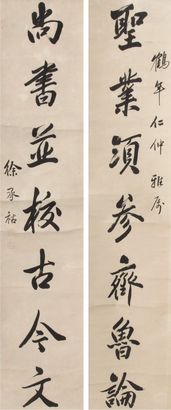 鶴年仁仲雅屬
聖業須參齊魯論
尚書並校古今文
徐承祜